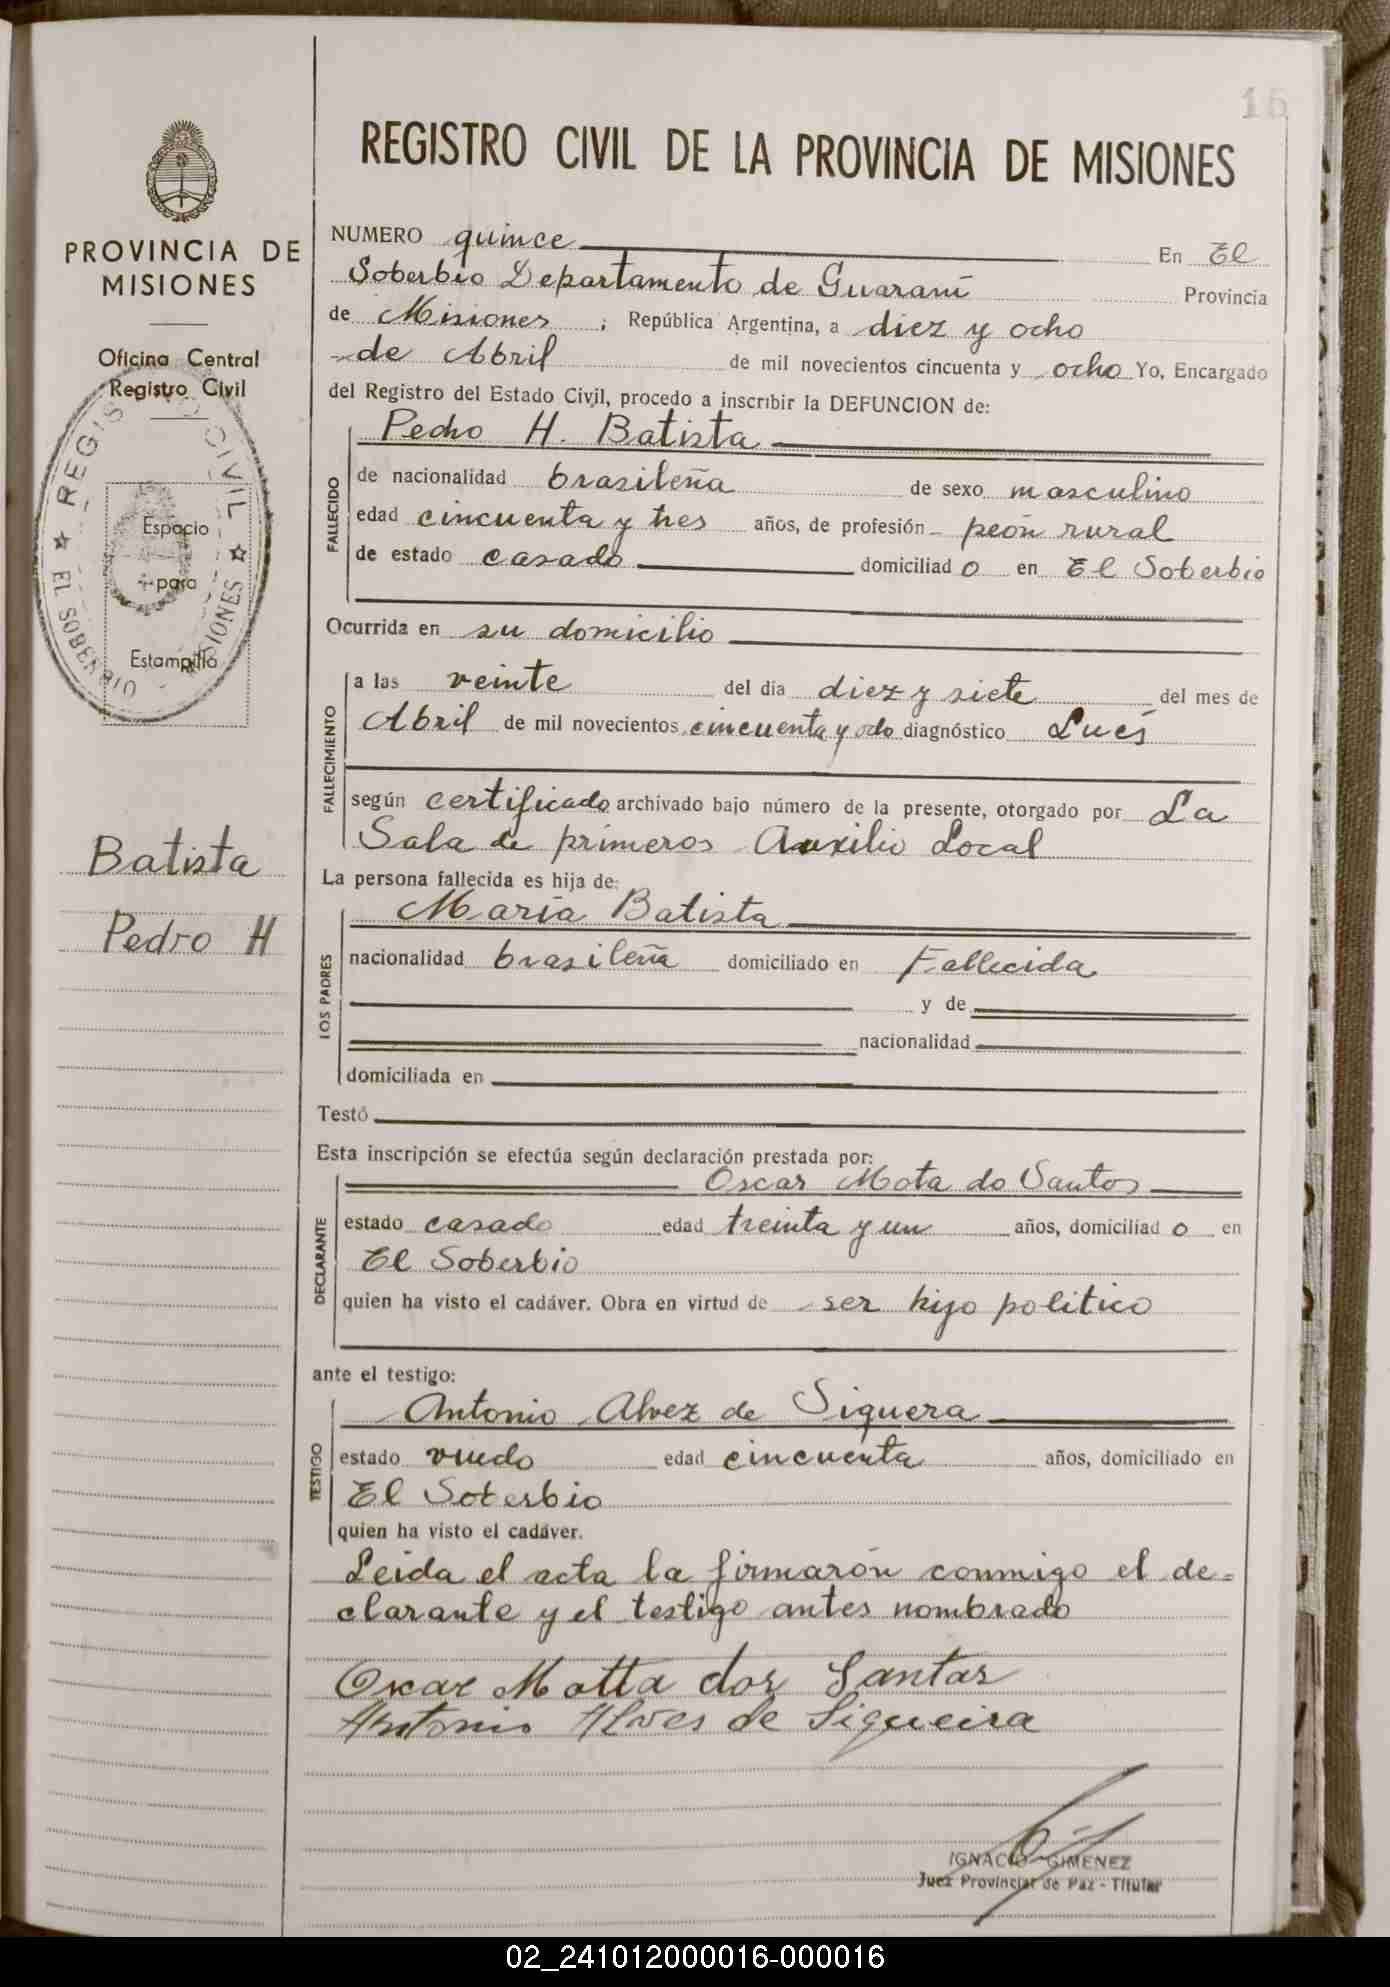 15
REGISTRO CIVIL DE LA PROVINCIA DE MISIONES
PROVINCIA DE
MISIONES
Oficina Central
Registro Civil
REGIS O CIVIL
★ EL SOBERBIO - MISIONES ★
Espacio
para
Estampilla
Batista
Pedro H
NUMERO quince En El
Soberbio Departamento de Guaraní Provincia
de Misiones ; República Argentina, a diez y ocho
de Abril de mil novecientos cincuenta y ocho Yo, Encargado
del Registro del Estado Civil, procedo a inscribir la DEFUNCION de:
Pedro H. Batista
FALLECIDO
de nacionalidad brasileña de sexo masculino
edad cincuenta y tres años, de profesión peón rural
de estado casado domiciliad o en El Soberbio
Ocurrida en su domicilio
FALLECIMIENTO
a las veinte del día diez y siete del mes de
Abril de mil novecientos cincuenta y ocho diagnóstico Lués
según certificado archivado bajo número de la presente, otorgado por La
Sala de primeros Auxilio Local
La persona fallecida es hija de:
LOS PADRES
María Batista
nacionalidad brasileña domiciliado en Fallecida
y de
nacionalidad
domiciliada en
Testó
Esta inscripción se efectúa según declaración prestada por:
DECLARANTE
Oscar Mota do Santos
estado casado edad treinta y un años, domiciliad o en
El Soberbio
quien ha visto el cadáver. Obra en virtud de ser hijo político
ante el testigo:
TESTIGO
Antonio Alvez de Siquera
estado viudo edad cincuenta años, domiciliado en
El Soberbio
quien ha visto el cadáver.
Leida el acta la firmarón conmigo el de=
clarante y el testigo antes nombrado
Oscar Motta dos Santas
Antonio Alves de Siqueira
IGNACIO GIMENEZ
Juez Provincial de Paz - Titular
02_241012000016-000016